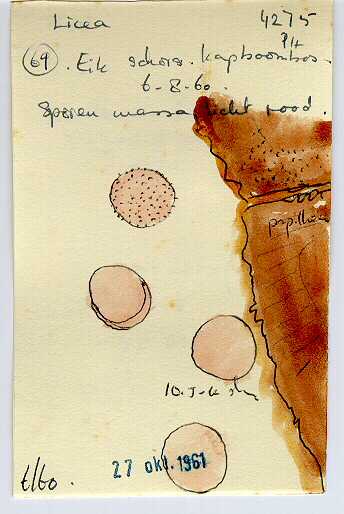 Licea 4275
PH
69 . Eik schors. kapboombos.
6-8-60.
Sporen massa licht rood.
papillen
27 okt. 1961